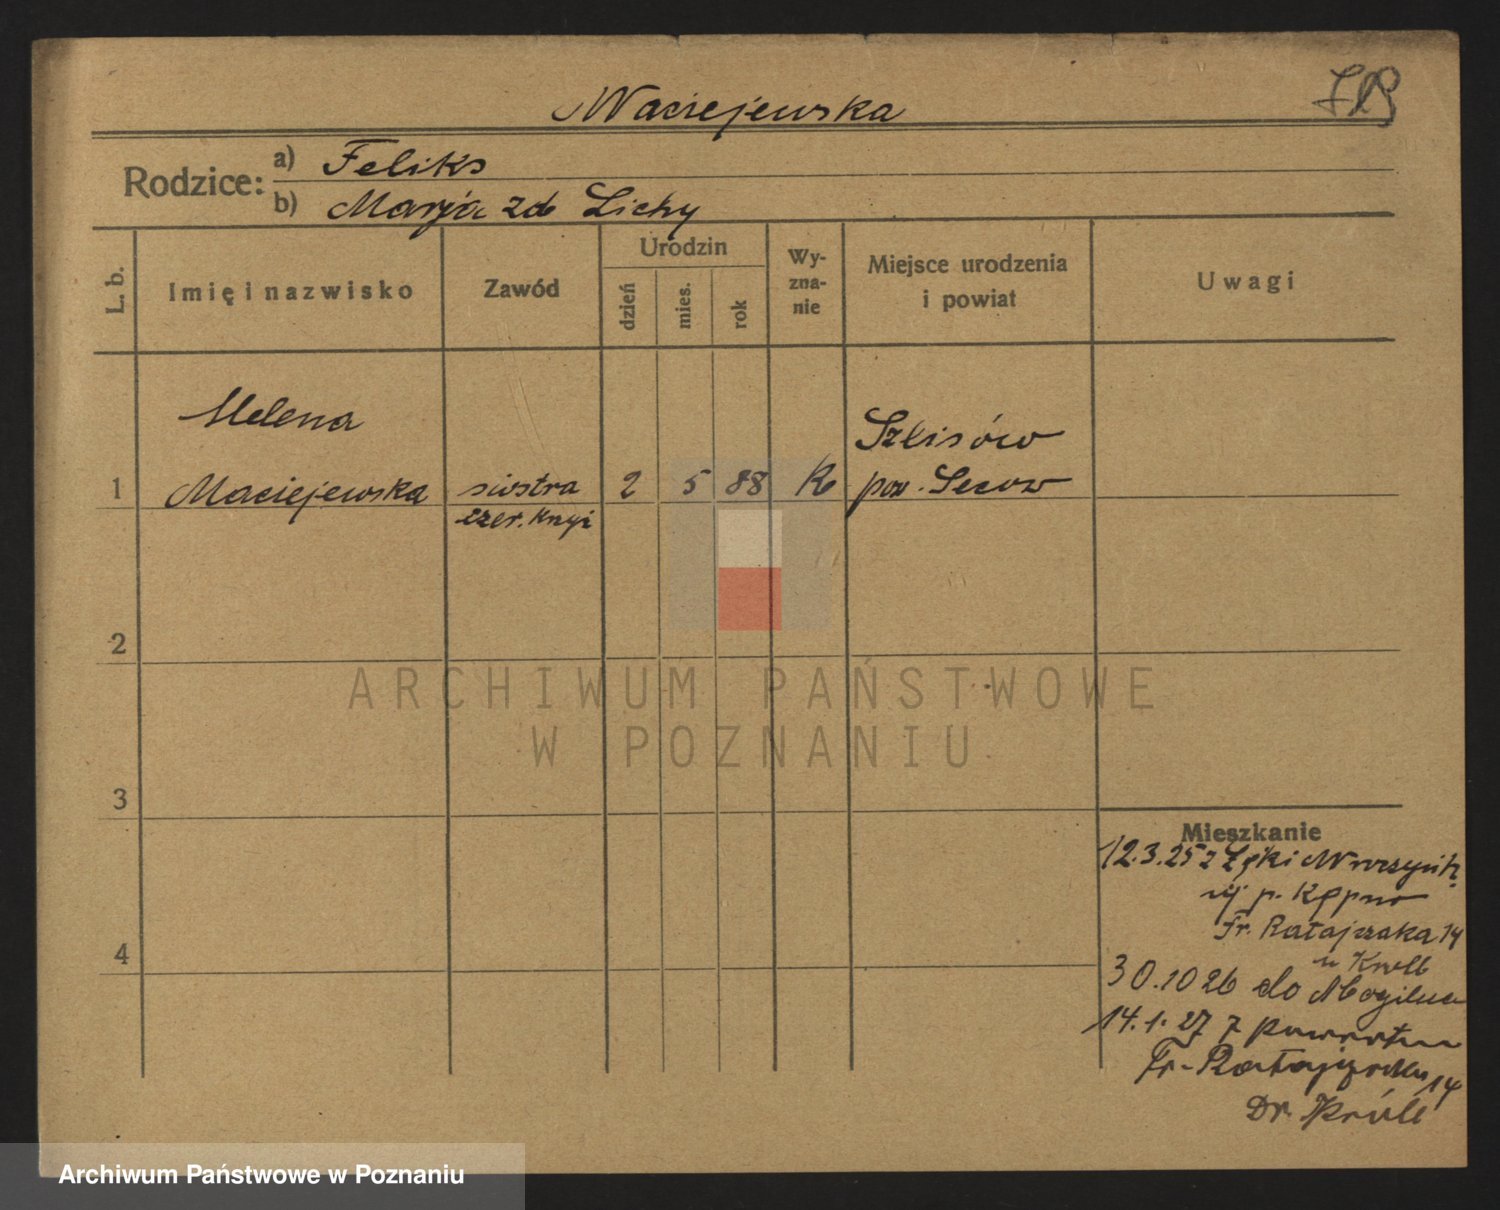 Maciejewska
Rodzice: a) Feliks
b) Marja zd Lichy
L. b. Imię i nazwisko Zawód Urodzin dzień mies. rok Wy-zna-nie Miejsce urodzenia i powiat Uwagi
Helena
1 Maciejewska siostra 2 5 88 K
czer. Krzyż
pow.
2
ARCHIWUM PAŃSTWOWE
W POZNANIU
3
Mieszkanie
12.3.25 z
p. Kępno
Fr. Ratajczaka 14
4
u
30.10 26 do Mogilna
14.1.27 z powrotem
Fr. Ratajczaka 14
Dr. Król
Archiwum Państwowe w Poznaniu